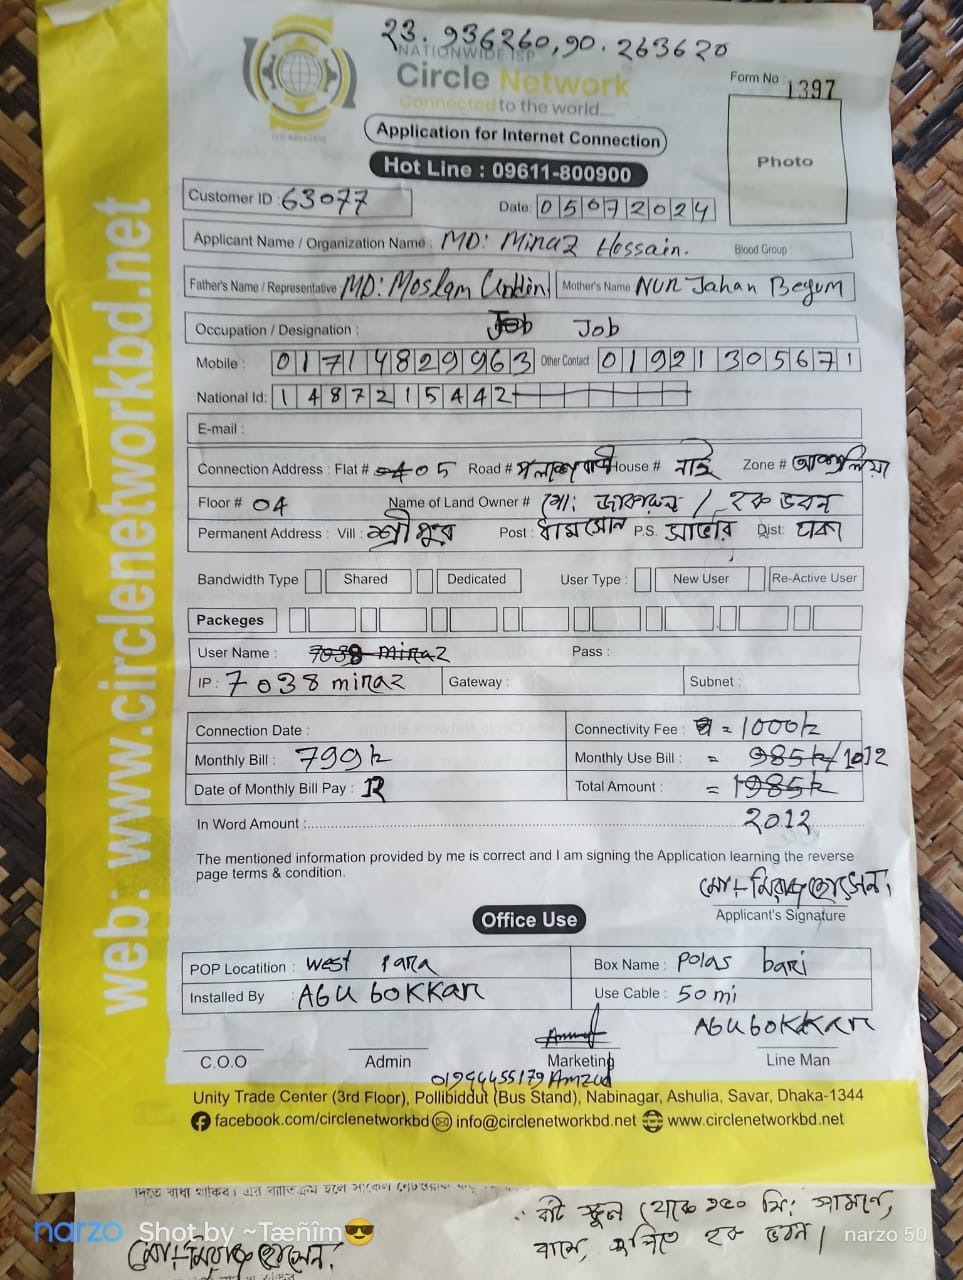 23.936260,90.263620
NATIONWIDE ISP
Circle Network
Connected to the world....
Form No : 1397
Application for Internet Connection
Hot Line : 09611-800900
Photo
web: www.circlenetworkbd.net
Customer ID : 63077
Date: 05072024
Applicant Name / Organization Name : MD: Minaz Hossain. Blood Group :
Father's Name / Representative MD: Moslam Uddin Mother's Name Nur Jahan Begum
Occupation / Designation : Job Job
Mobile : 01714829963 Other Contact 01921305671
National Id: 1487215442
E-mail :
Connection Address : Flat # 05 Road # পলাশবাড়ী House # নাই Zone # আশুলিয়া
Floor # 04 Name of Land Owner # মো: / হক ভবন
Permanent Address : Vill : শ্রীপুর Post : ধামসোনা P.S. সাভার Dist: ঢাকা
Bandwidth Type Shared Dedicated User Type : New User Re-Active User
Packeges
User Name : 7038 minaz Pass :
IP : 7038 minaz Gateway : Subnet :
Connection Date : Connectivity Fee : = 1000tk
Monthly Bill : 799tk Monthly Use Bill : = 985tk/1012
Date of Monthly Bill Pay : 12 Total Amount : = 1985tk
In Word Amount :........ 2012
The mentioned information provided by me is correct and I am signing the Application learning the reverse
page terms & condition.
মোঃ মিরাজ হোসেন
Applicant's Signature
Office Use
POP Locatition : west para Box Name : Polas bari
Installed By : ABU bokkar Use Cable : 50 mi
ABU bokkar
C.O.O Admin Marketing Line Man
01944455179 Amzad
Unity Trade Center (3rd Floor), Pollibiddut (Bus Stand), Nabinagar, Ashulia, Savar, Dhaka-1344
facebook.com/circlenetworkbd info@circlenetworkbd.net www.circlenetworkbd.net
স্কুল থেকে ১৫০ মি: সামনে,
বামে, হক ভবন।
মোঃ মিরাজ হোসেন.
narzo Shot by ~Tæñîm😎 narzo 50